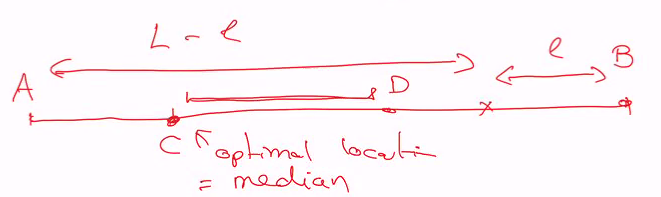 L - l
l
A
B
D
C optimal locatin
= median